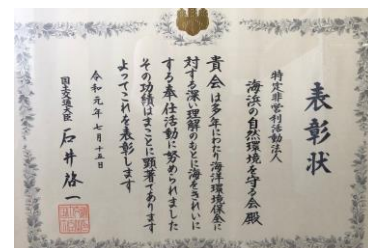 表彰状
特定非営利活動法人
海浜の自然環境を守る会殿
貴会は多年にわたり海洋環境保全に
対する深い理解のもとに海をきれいに
する奉仕活動に努められました
その功績はまことに顕著であります
よってこれを表彰します
令和元年七月十五日
国土交通大臣 石井啓一